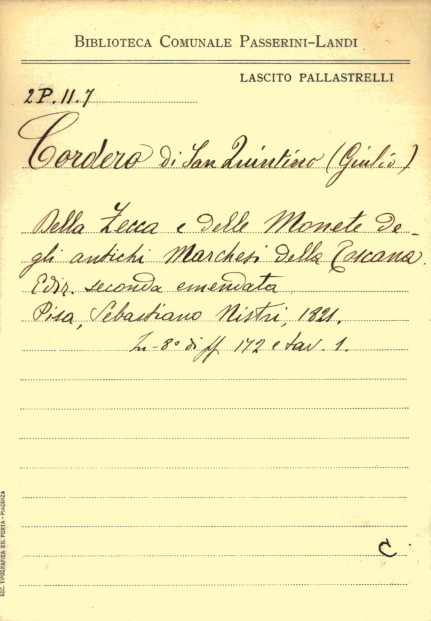 BIBLIOTECA COMUNALE PASSERINI-LANDI
LASCITO PALLASTRELLI
2P.11.7
Cordero di San Quintino (Giulio)
Della Zecca e delle Monete de-
gli antichi Marchesi della Toscana.
Ediz. seconda emendata
Pisa, Sebastiano Nistri, 1821.
In-8° di pp 172 e tav. 1.
C
SOC. TIPOGRAFICA ED. PORTA - PIACENZA